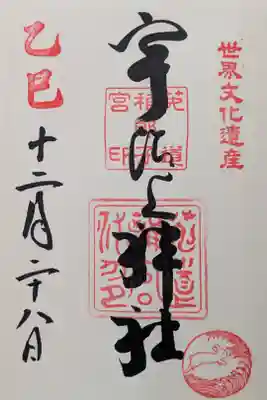 世界文化遺産
宇治上神社
乙巳
十二月二十八日